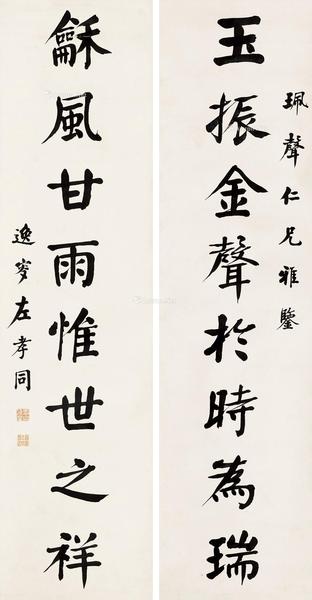 珮聲仁兄雅鑒
玉振金聲於時為瑞
龢風甘雨惟世之祥
逸叜左孝同